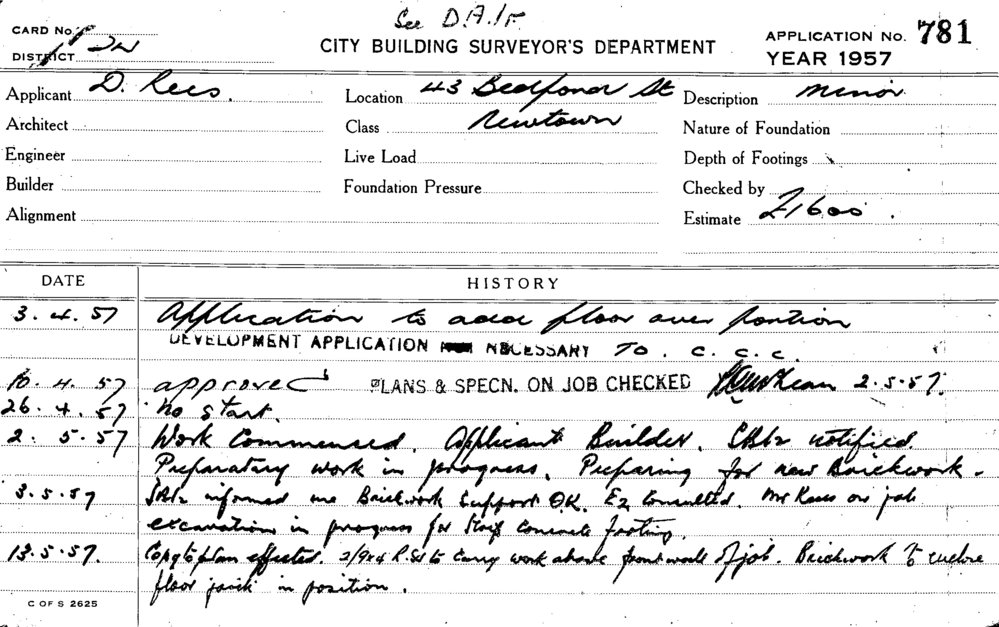 See D.A. /
CARD No.
DISTRICT
CITY BUILDING SURVEYOR'S DEPARTMENT
APPLICATION No. 781
YEAR 1957
Applicant D. Rees.
Location 43 Bedford St
Description Minor
Architect
Class Newtown
Nature of Foundation
Engineer
Live Load
Depth of Footings
Builder
Foundation Pressure
Checked by
Alignment
Estimate £1600.
DATE
HISTORY
3.4.57 Application to add floor over portion
DEVELOPMENT APPLICATION NECESSARY TO. C.C.C.
10.4.57 approved PLANS & SPECN. ON JOB CHECKED 2.5.57.
26.4.57 No start.
2.5.57 Work Commenced. Applicant Builder. notified.
Preparatory work in progress. Preparing for new Brickwork.
3.5.57 informed me Brickwork Support OK. E2 Consulted. Mr Rees on job
excavation in progress for concrete footing.
13.5.57. Copy to plan effected. to carry work above front wall of job. Brickwork to
floor in position.
C OF S 2625